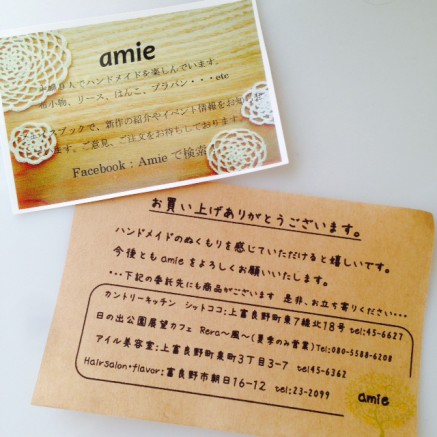 amie
人でハンドメイドを楽しんでいます。
小物、リース、はんこ、プラバン・・・etc
ブックで、新作の紹介やイベント情報をお知
ます。ご意見、ご注文をお待ちしております。
Facebook : Amie で検索
お買い上げありがとうございます。
ハンドメイドのぬくもりを感じていただけると嬉しいです。
今後とも amie をよろしくお願いいたします。
・・・下記の委託先にも商品がございます 是非、お立ち寄りください・・・
カントリーキッチン シットココ:上富良野町東7線北18号 tel:45-6627
日の出公園展望カフェ Rera〜風〜(夏季のみ営業)Tel:080-5588-6208
アイル美容室:上富良野町泉町3丁目3-7 tel:45-6362
Hairsalon・flavor:富良野市朝日16-12 tel:23-2099
amie